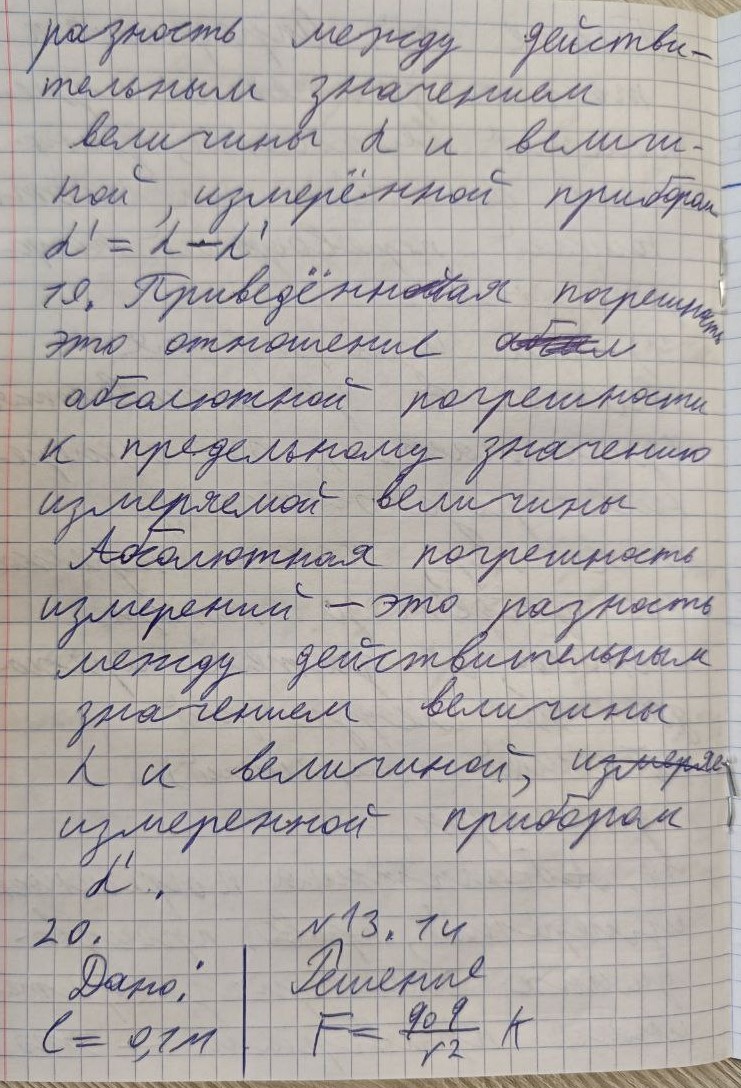 разность между действи-
тельным значением
величины α и величи-
ной, измерённой прибором
α' = α - α'
19. Приведённая погрешность
это отношение
абсолютной погрешности
к предельному значению
измеряемой величины
Абсолютная погрешность
измерений — это разность
между действительным
значением величины
α и величиной, измеряе
измеренной прибором
α'.
20. №13.14
Дано: Решение
l = 0,1м F = q₀q/r² K